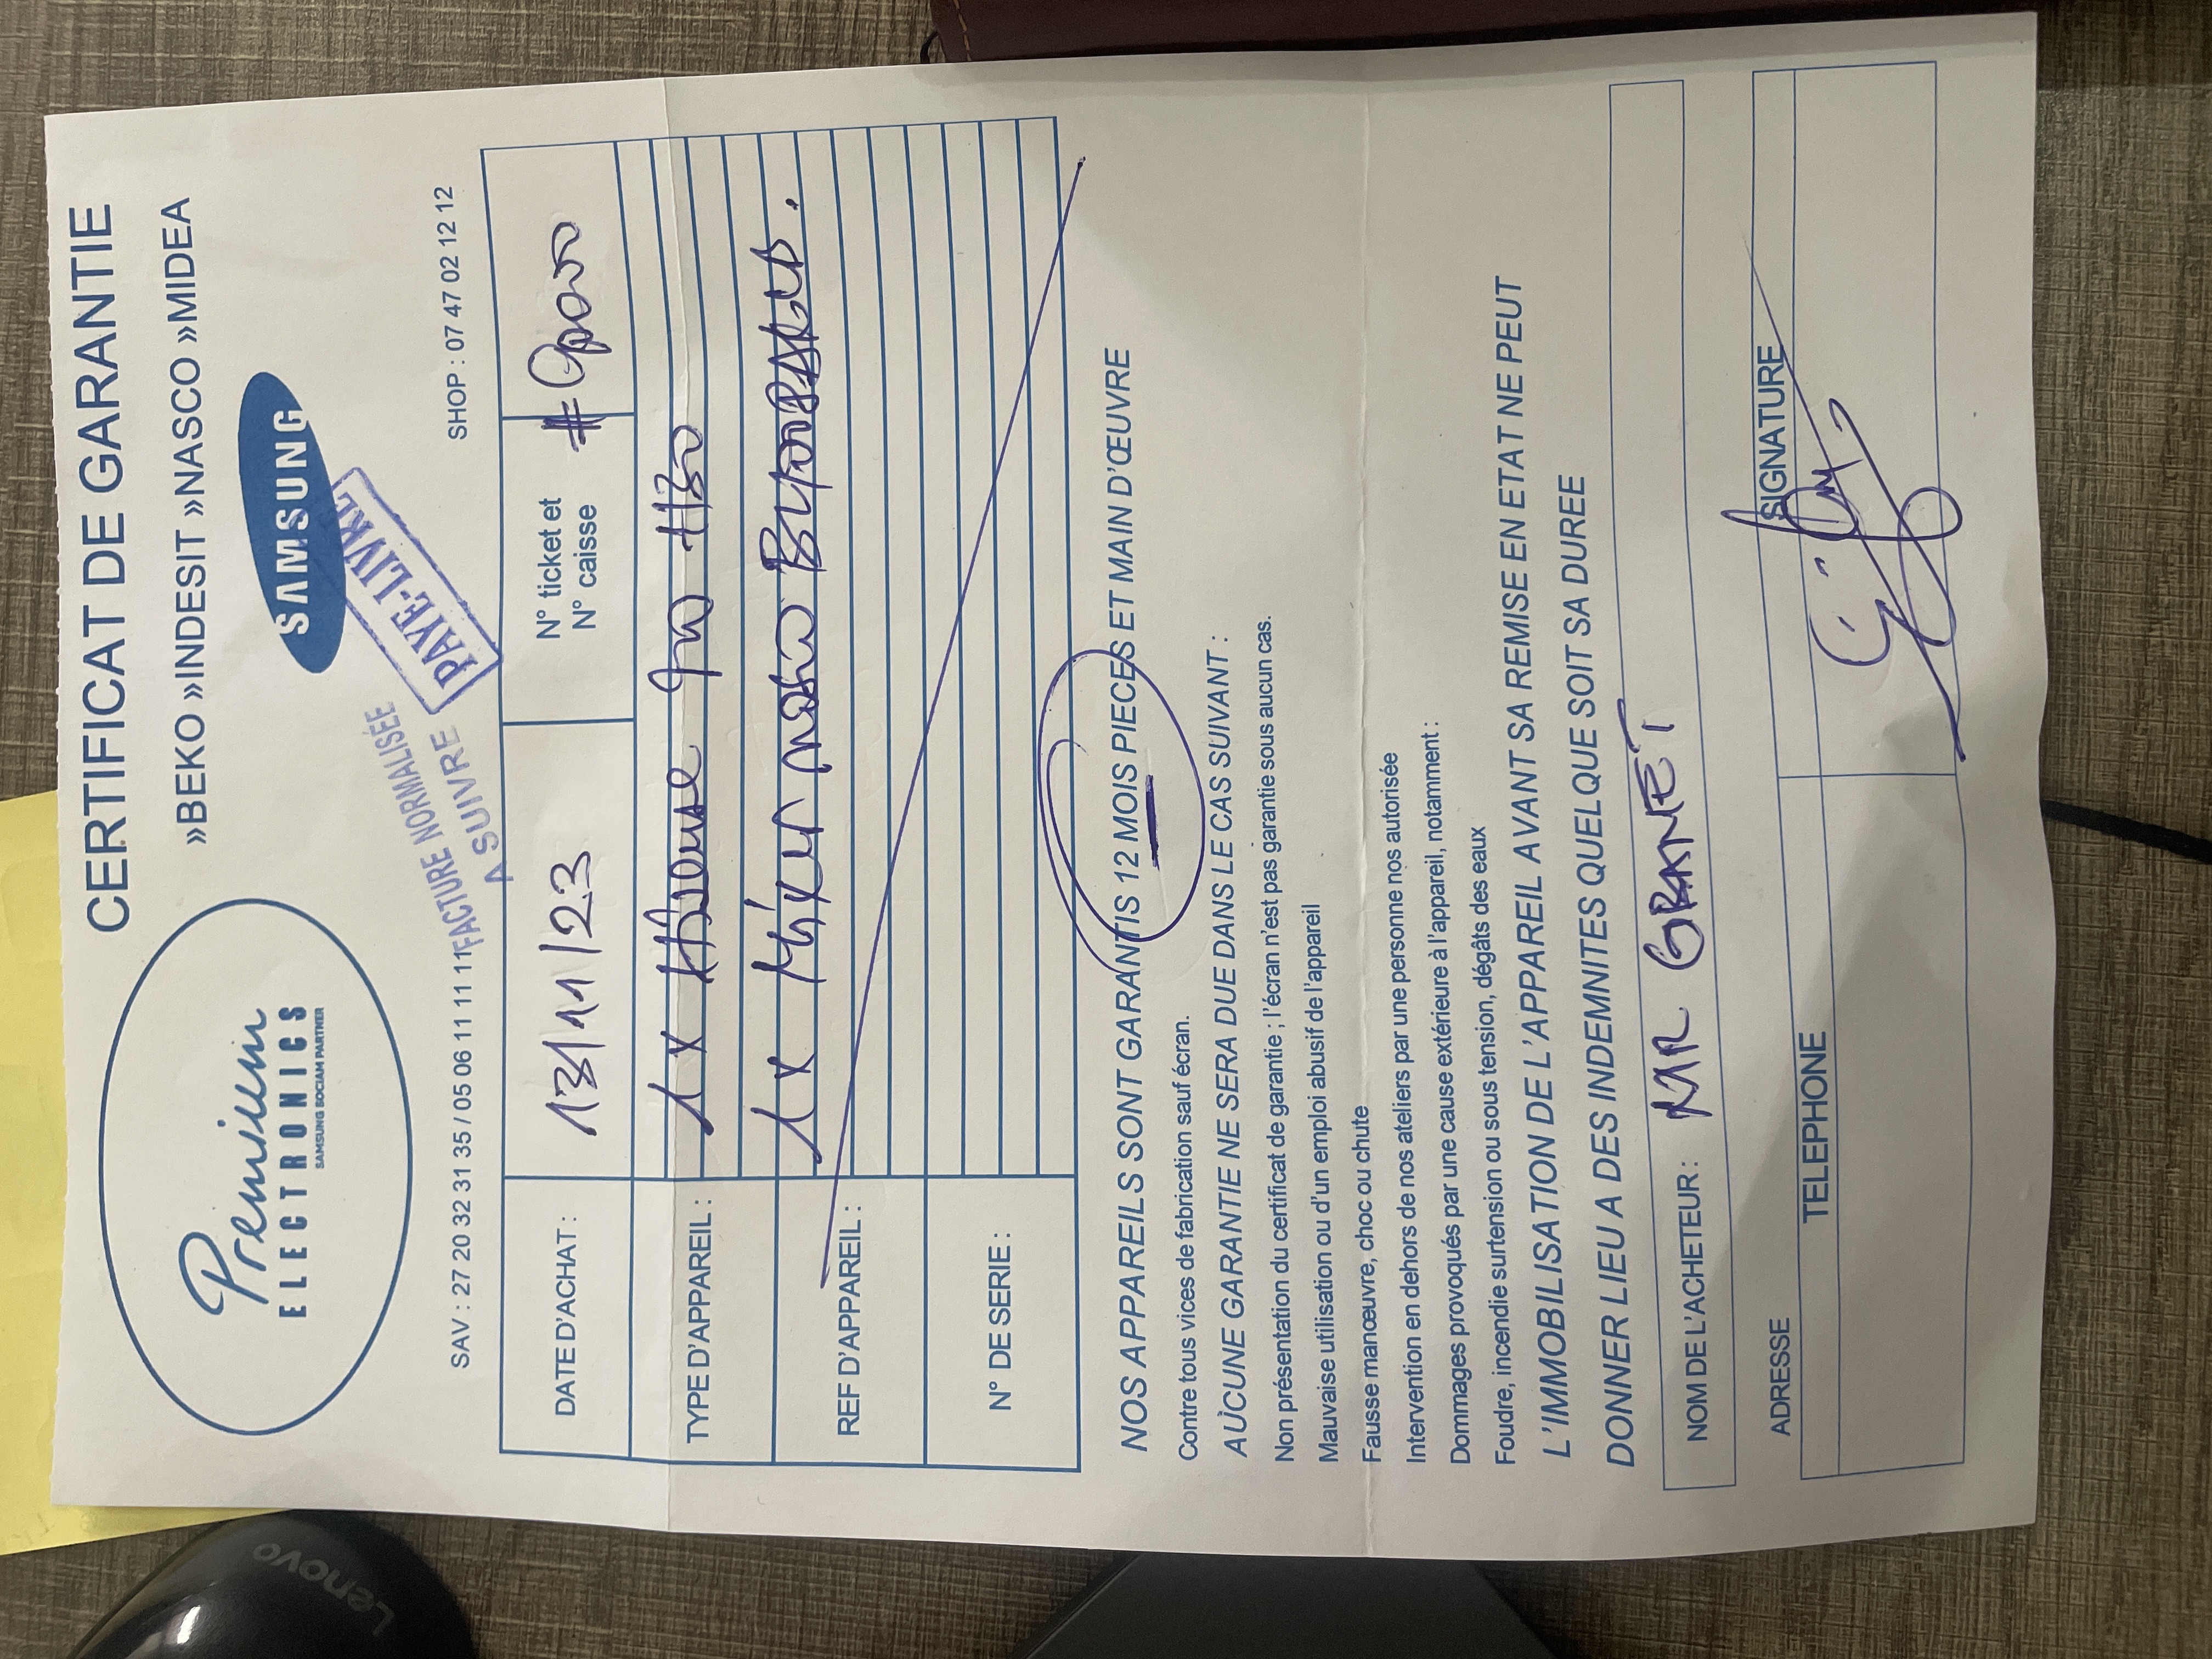 CERTIFICAT DE GARANTIE
»BEKO »INDESIT »NASCO »MIDEA
Premium
ELECTRONICS
SAMSUNG SOCIAM PARTNER
SAMSUNG
FACTURE NORMALISÉE
A SUIVRE
PAYE-LIVRE
SAV : 27 20 32 31 35 / 05 06 11 11 11
SHOP : 07 47 02 12 12
DATE D'ACHAT :
13/11/23
N° ticket et
N° caisse
#
TYPE D'APPAREIL :
1x H30
1x Mixer nasco
REF D'APPAREIL :
N° DE SERIE :
NOS APPAREILS SONT GARANTIS 12 MOIS PIECES ET MAIN D'ŒUVRE
Contre tous vices de fabrication sauf écran.
AUCUNE GARANTIE NE SERA DUE DANS LE CAS SUIVANT :
Non présentation du certificat de garantie ; l'écran n'est pas garantie sous aucun cas.
Mauvaise utilisation ou d'un emploi abusif de l'appareil
Fausse manœuvre, choc ou chute
Intervention en dehors de nos ateliers par une personne nos autorisée
Dommages provoqués par une cause extérieure à l'appareil, notamment :
Foudre, incendie surtension ou sous tension, dégâts des eaux
L'IMMOBILISATION DE L'APPAREIL AVANT SA REMISE EN ETAT NE PEUT
DONNER LIEU A DES INDEMNITES QUELQUE SOIT SA DUREE
NOM DE L'ACHETEUR : MR GRANET
ADRESSE
SIGNATURE
TELEPHONE
Lenovo